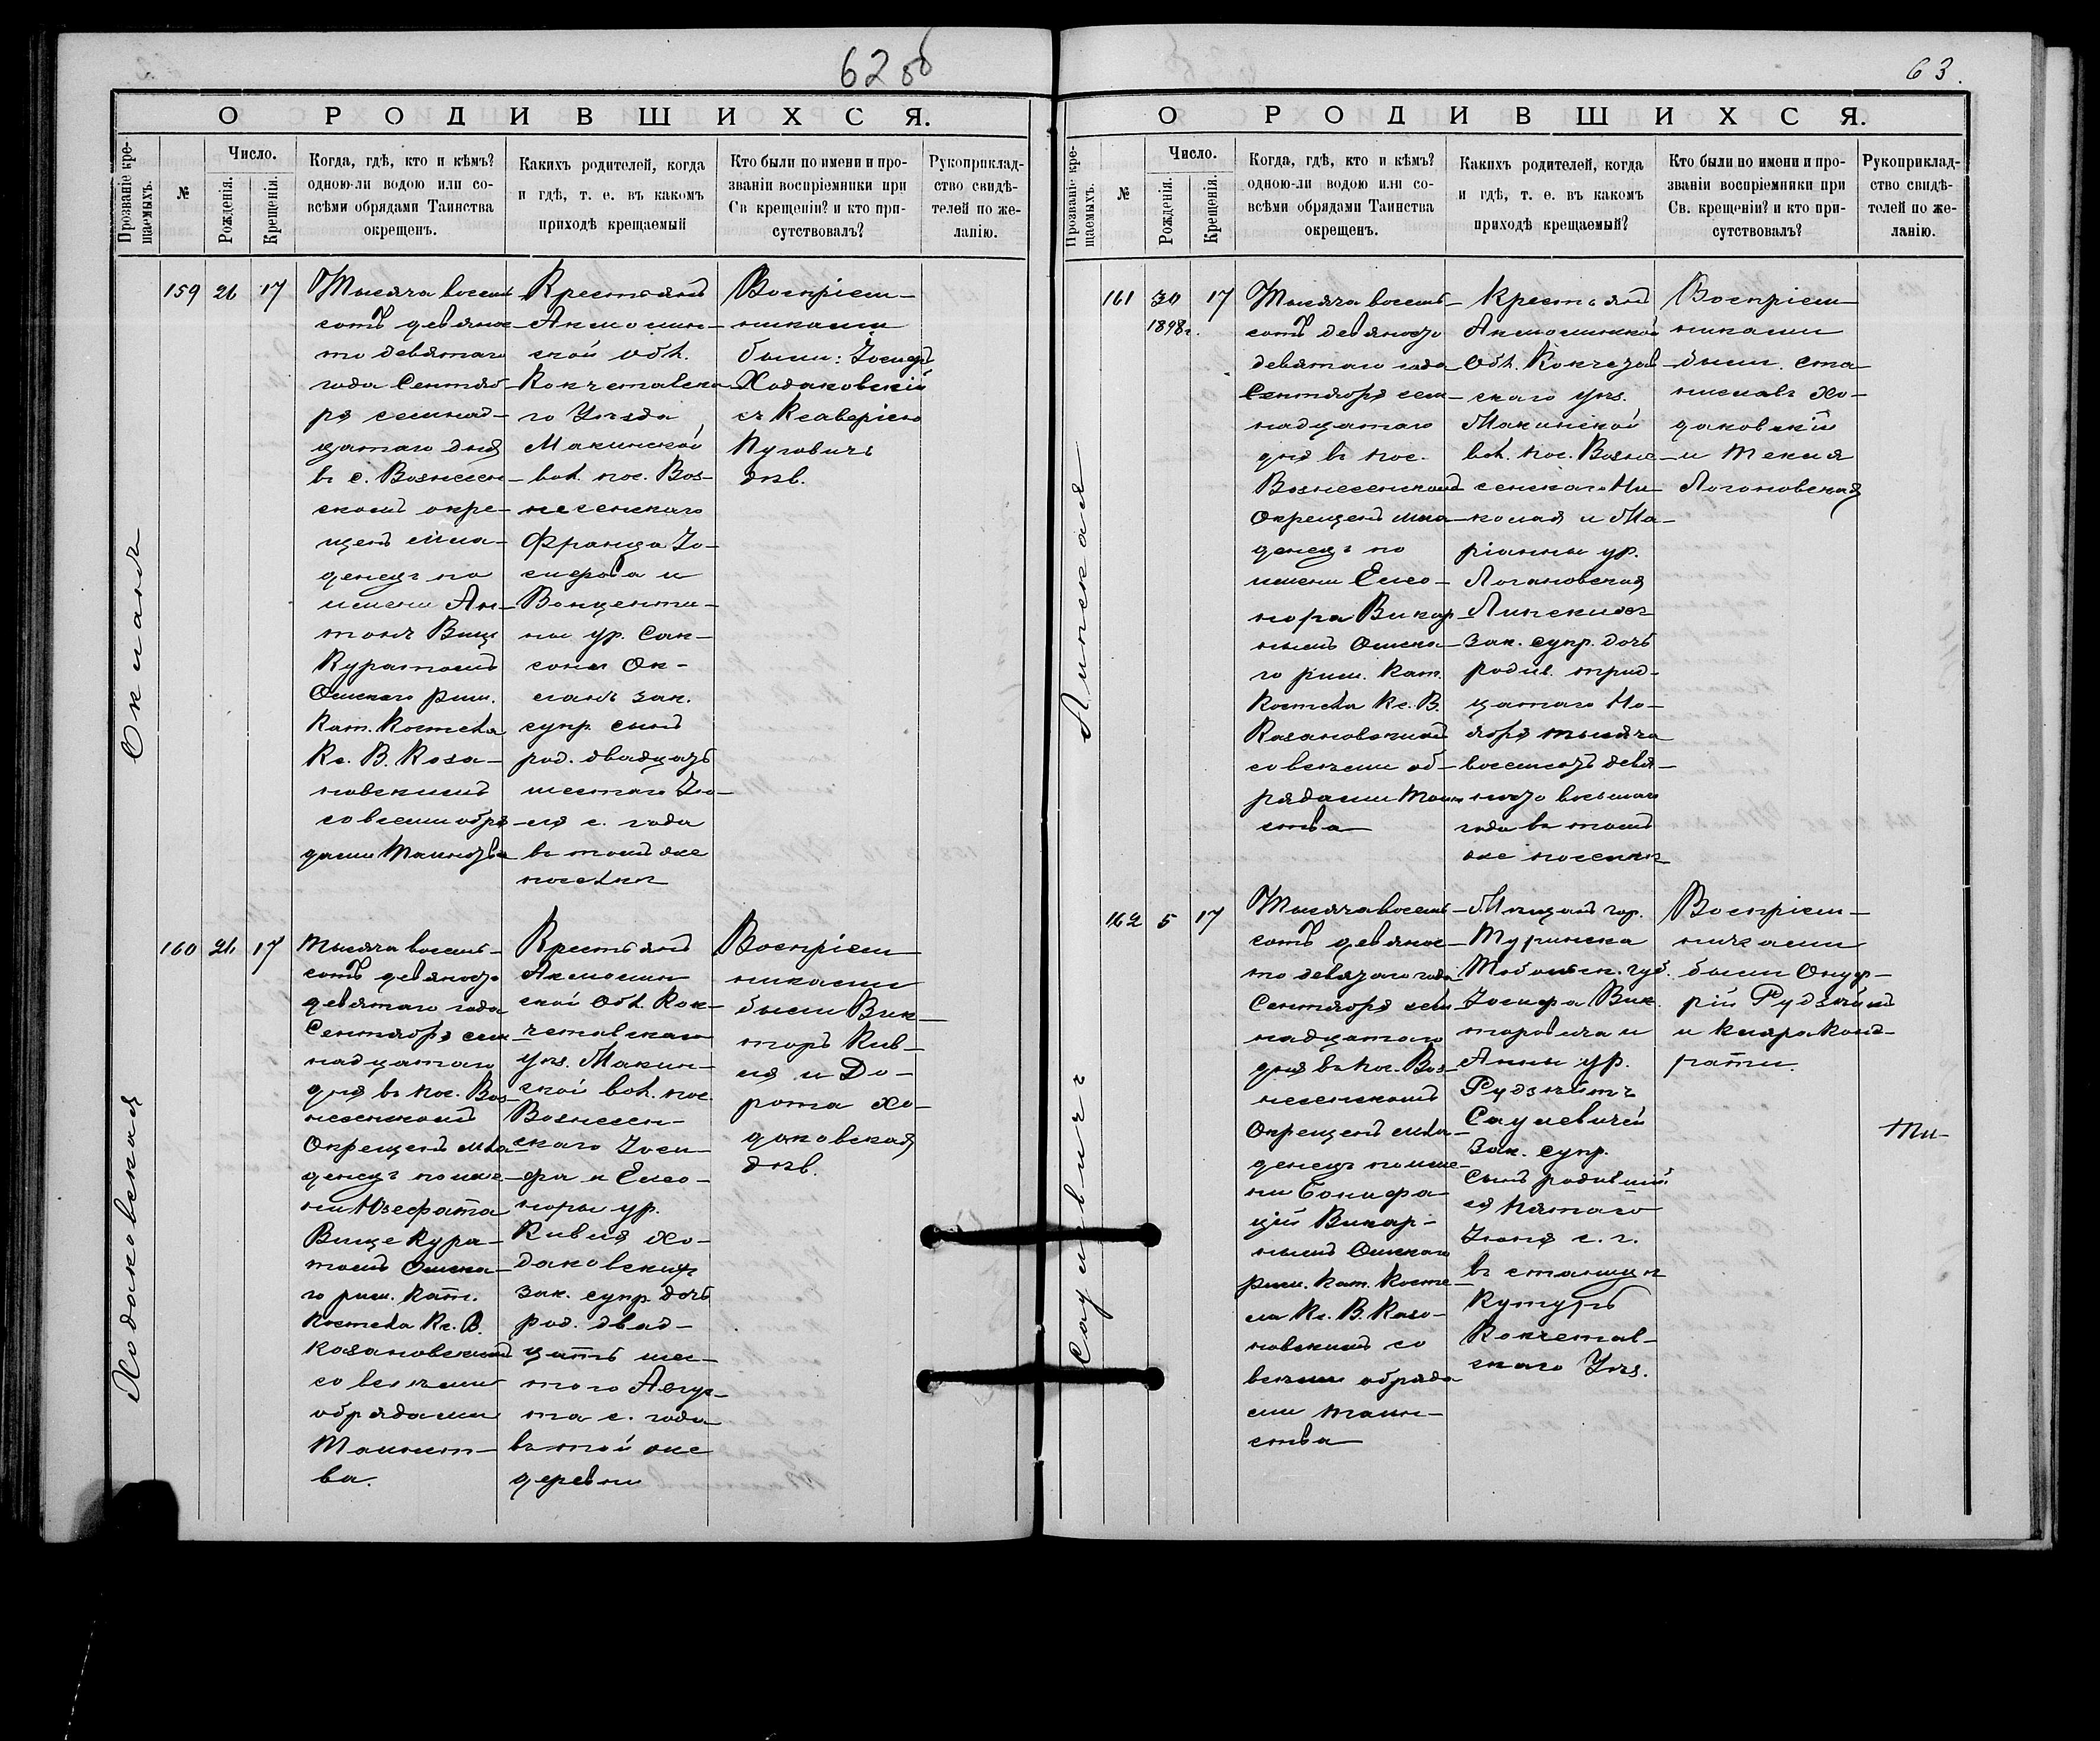 62 об
О РОДИВШИХСЯ.
Прозваніе кре-
щаемыхъ.
№
Число.
Рожденія.
Крещенія.
Когда, гдѣ, кто и кѣмъ?
одною-ли водою или со-
всѣми обрядами Таинства
окрещенъ.
Какихъ родителей, когда
и гдѣ, т. е. въ какомъ
приходѣ крещаемый
Кто были по имени и про-
званіи воспріемники при
Св крещеніи? и кто при-
сутствовалъ?
Рукоприклад-
ство свидѣ-
телей по же-
ланію.
Окланъ
159
26
17
Тысяча восемь
сотъ девянос-
то девятаго
года Сентяб-
ря семнад-
цатаго дня
въ с. Вознесен-
скомъ окре-
щенъ мла-
денецъ по
имени Ан-
тонъ Вице
Куратомъ
Омскаго рим.
кат. Костела
Кс. В. Коза-
новскимъ
со всеми обря-
дами Таинства
Крестьянъ
Акмолин-
ской обл.
Кокчетавска-
го Уѣзда
Макинской
вол. пос. Воз-
несенскаго
Франца Іо-
сифова и
Винценти-
ны ур. Сак-
сонъ Ок-
ланъ зак.
супр. сынъ
род. двадцать
шестаго Ію-
ля с. года
въ томъ же
поселкѣ
Воспріем-
никами
были: Іосифъ
Ходаковскій
съ Ксаверіею
Пуговичъ
дѣв.
Ходаковская
160
26
17
Тысяча восемь-
сотъ девяносто
девятаго года
Сентября сем
надцатаго
дня въ пос. Воз-
несенскомъ
Окрещенъ мла-
денецъ по име-
ни Юзефата
Вице Кура-
томъ Омска-
го рим. кат.
Костела Кс. В.
Козановскимъ
со всѣми
обрядами
Таинст-
ва.
Крестьянъ
Акмолин
ской обл. Кок-
четавскаго
уѣз. Макин-
ской вол. пос.
Вознесен-
скаго Іоси-
фа и Елео-
норы ур.
Кивля Хо-
даковскихъ
зак. супр. дочь
род. двад-
цать шес-
того Авгус-
та с. года
въ той же
деревни
Воспріем
никами
были Вик-
торъ Кив-
ля и До-
рота Хо-
даковская
дѣв.
63.
О РОДИВШИХСЯ.
Прозваніе кре-
щаемыхъ.
№
Число.
Рожденія.
Крещенія.
Когда, гдѣ, кто и кѣмъ?
одною-ли водою или со-
всѣми обрядами Таинства
окрещенъ.
Какихъ родителей, когда
и гдѣ, т. е. въ какомъ
приходѣ крещаемый?
Кто были по имени и про-
званіи воспріемники при
Св. крещеніи? и кто при-
сутствовалъ?
Рукоприклад-
ство свидѣ-
телей по же-
ланію.
Линская
161
30
1898 г.
17
Тысяча восемь-
сотъ девяносто
девятаго года
Сентября сем-
надцатаго
дня въ пос.
Вознесенскомъ
Окрещенъ мла-
денецъ по
имени Елео-
нора Викар-
нымъ Омска-
го рим. кат.
Костела Кс. В.
Козановскимъ
со всѣми об-
рядами Таин-
ства
Крестьянъ
Акмолинской
Обл. Кокчетав
скаго уѣз.
Макинской
вол. пос. Возне-
сенскаго Ни-
колая и Ма-
ріанны ур.
Логановская
Линскихъ
зак. супр. дочь
родив. трид-
цатаго Но-
ября тысяча
восемсотъ девя-
носто восьмаго
года въ томъ
же поселкѣ
Воспріем-
никами
были Ста
ниславъ Хо-
даковскій
и Текля
Логоновская
Саулевичъ
162
5
17
Тысяча восемь-
сотъ девянос-
то девятаго года
Сентября сем
надцатаго
дня въ пос. Воз-
несенскомъ
Окрещенъ мла-
денецъ по име-
ни Бонифа-
цій Викар-
нымъ Омскаго
рим. кат. Косте-
ла Кс. В. Казо-
новскимъ со
всѣми обряда
ми таин-
ства
Мѣщанъ гор.
Туринска
Тобольск. губ.
Іосифа Вик-
торовича и
Анны ур.
Рудзкитъ
Саулевичей
зак. супр.
сынъ родивший
ся пятаго
Іюня с. г.
въ станицѣ
Кутуръ
Кокчетав-
скаго Уѣз.
Воспріем-
никами
были Онуф-
рій Рудзкитъ
и Клара Конд-
рати.